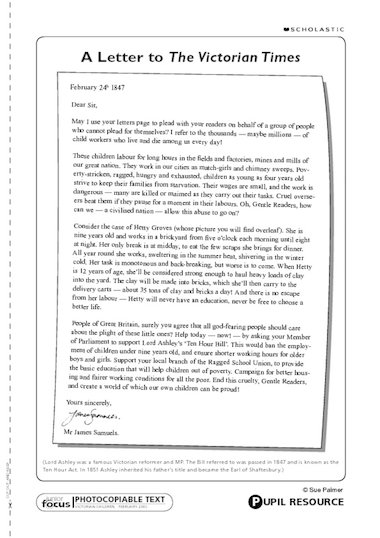 SCHOLASTIC
A Letter to The Victorian Times
February 24th 1847
Dear Sir,
May I use your letters page to plead with your readers on behalf of a group of people
who cannot plead for themselves? I refer to the thousands — maybe millions — of
child workers who live and die among us every day!
These children labour for long hours in the fields and factories, mines and mills of
our great nation. They work in our cities as match-girls and chimney sweeps. Pov-
erty-stricken, ragged, hungry and exhausted, children as young as four years old
strive to keep their families from starvation. Their wages are small, and the work is
dangerous — many are killed or maimed as they carry out their tasks. Cruel overse-
ers beat them if they pause for a moment in their labours. Oh, Gentle Readers, how
can we — a civilised nation — allow this abuse to go on?
Consider the case of Hetty Groves (whose picture you will find overleaf). She is
nine years old and works in a brickyard from five o'clock each morning until eight
at night. Her only break is at midday, to eat the few scraps she brings for dinner.
All year round she works, sweltering in the summer heat, shivering in the winter
cold. Her task is monotonous and back-breaking, but worse is to come. When Hetty
is 12 years of age, she'll be considered strong enough to haul heavy loads of clay
into the yard. The clay will be made into bricks, which she'll then carry to the
delivery carts — about 35 tons of clay and bricks a day! And there is no escape
from her labour — Hetty will never have an education, never be free to choose a
better life.
People of Great Britain, surely you agree that all god-fearing people should care
about the plight of these little ones? Help today — now! — by asking your Member
of Parliament to support Lord Ashley's 'Ten Hour Bill'. This would ban the employ-
ment of children under nine years old, and ensure shorter working hours for older
boys and girls. Support your local branch of the Ragged School Union, to provide
the basic education that will help children out of poverty. Campaign for better hous-
ing and fairer working conditions for all the poor. End this cruelty, Gentle Readers,
and create a world of which our own children can be proud!
Yours sincerely,
James Samuels.
Mr James Samuels.
(Lord Ashley was a famous Victorian reformer and MP. The Bill referred to was passed in 1847 and is known as the
Ten Hour Act. In 1851 Ashley inherited his father's title and became the Earl of Shaftesbury.)
© Sue Palmer
junior focus PHOTOCOPIABLE TEXT
VICTORIAN CHILDREN - FEBRUARY
PUPIL RESOURCE